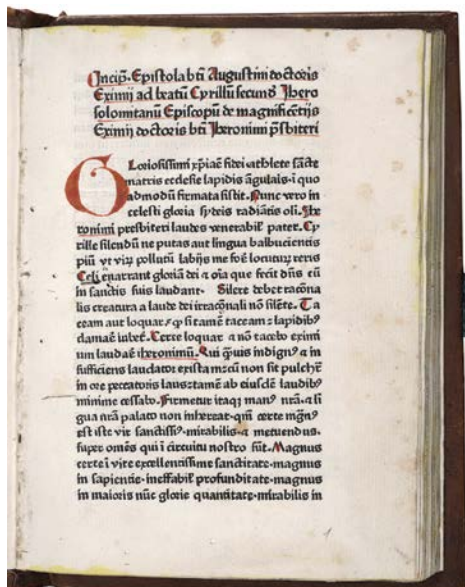 Incip̃. Epistola bti Augustini doctoris
Eximij ad beatū Cyrillū secund̃ Ihero
solomitanū Episcopū de magnificētijs
Eximij doctoris bti Iheronimi p̃sbiteri
Gloriosissimi xp̃iane fidei athlete sācte
matris ecclesie lapidis āgularis. ī quo
admodū firmata sistit. Nunc vero in
celesti gloria syderis radiātis oli. Ihe
ronimi presbiteri laudes venerabil' pater. Cy
rille silendū ne putas aut lingua balbucientis
Celi enarrant gloriā dei ⁊ oīa que fecit dñs cū
in sanctis suis laudant. Silere debet racōna
lis creatura a laude dei irracōnali nō silēte. Ta
ceam aut loquar si tamē taceam a lapidibꝰ
clamare iubet. Certe loquar ⁊ nō tacebo eximi
um laudare iheronimū. Qui q̃uis indignꝰ ⁊ in
sufficiens laudator existam cū non sit pulchr̃
in ore peccatoris laus tamē ab eiusdē laudibꝰ
minime cessabo. Firmetur itaq; manꝰ nr̃a ⁊ li
gua nr̃a palato non inhereat. qm̃ certe mgꝰ
est iste vir sanctissiꝰ. mirabilis. ⁊ metuendus.
super omēs qui ī circuitu nostro sūt. Magnus
certe ī vite excellentissime sanctitate. magnus
in sapientie. ineffabil' profunditate. magnus
in maioris nūc glorie quantitate. mirabilis in
1